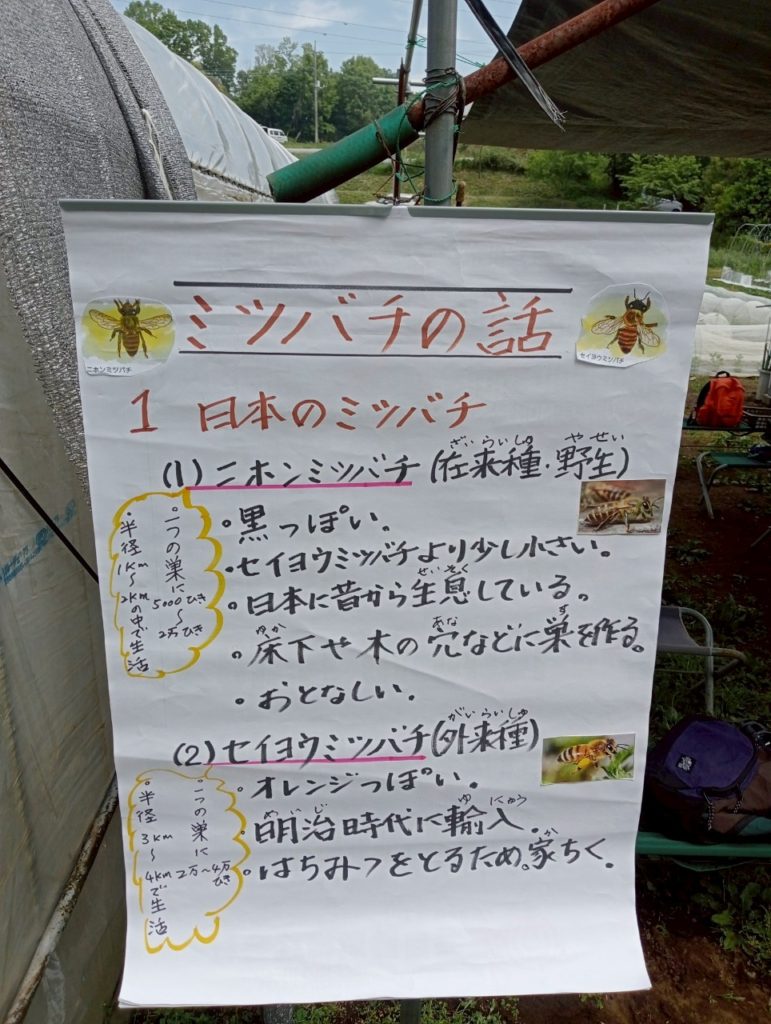 ミツバチの話
ニホンミツバチ
セイヨウミツバチ
1 日本のミツバチ
(1)ニホンミツバチ(在来種・野生)
ざいらいしゅ やせい
・一つの巣に
5000ひき
〜
2万ひき
・半径1km〜
2kmの中で生活
・黒っぽい。
・セイヨウミツバチより少し小さい。
・日本に昔から生息している。
せいそく
・床下や木の穴などに巣を作る。
ゆか あな す
・おとなしい。
(2)セイヨウミツバチ(外来種)
がいらいしゅ
・一つの巣に
2万〜4万
ひき
・半径3km〜
4kmで生活
・オレンジっぽい。
・明治時代に輸入。
めいじ ゆにゅう
・はちみつをとるため。家ちく。
か